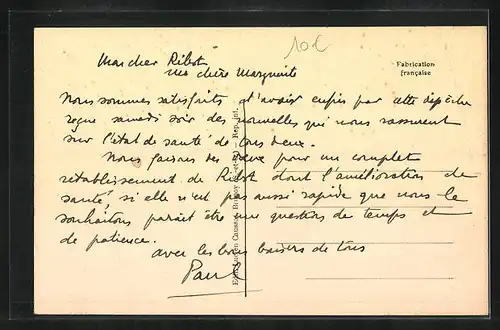 10€
Fabrication
française
Mon cher Ribot
ma chère Marguerite
Nous sommes satisfaits d'avoir enfin par cette dépêche
reçue samedi soir des nouvelles qui nous rassurent
sur l'état de santé de tous deux.
Nous faisons des vœux pour un complet
rétablissement de Ribot dont l'amélioration de
santé, si elle n'est pas aussi rapide que nous le
souhaitons parait être une question de temps et
de patience.
avec les bons baisers de tous
Paul